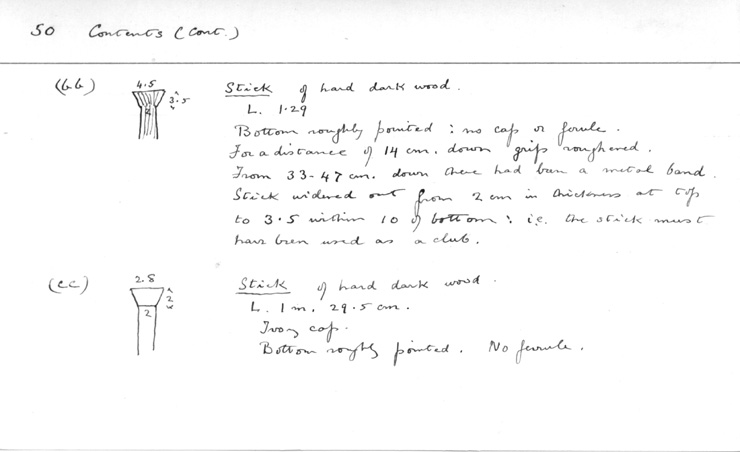 50 Contents (Cont.)
(bb) 4.5 3.5 2 Stick of hard dark wood.
L. 1.29
Bottom roughly pointed : no cap or ferule.
For a distance of 14 cm. down grip roughened.
From 33-47 cm. down there had been a metal band.
Stick widened out from 2 cm in thickness at top
to 3.5 within 10 of bottom : i.e. the stick must
have been used as a club.
(cc) 2.8 2 2 Stick of hard dark wood.
L. 1 m. 29.5 cm.
Ivory cap.
Bottom roughly pointed. No ferrule.